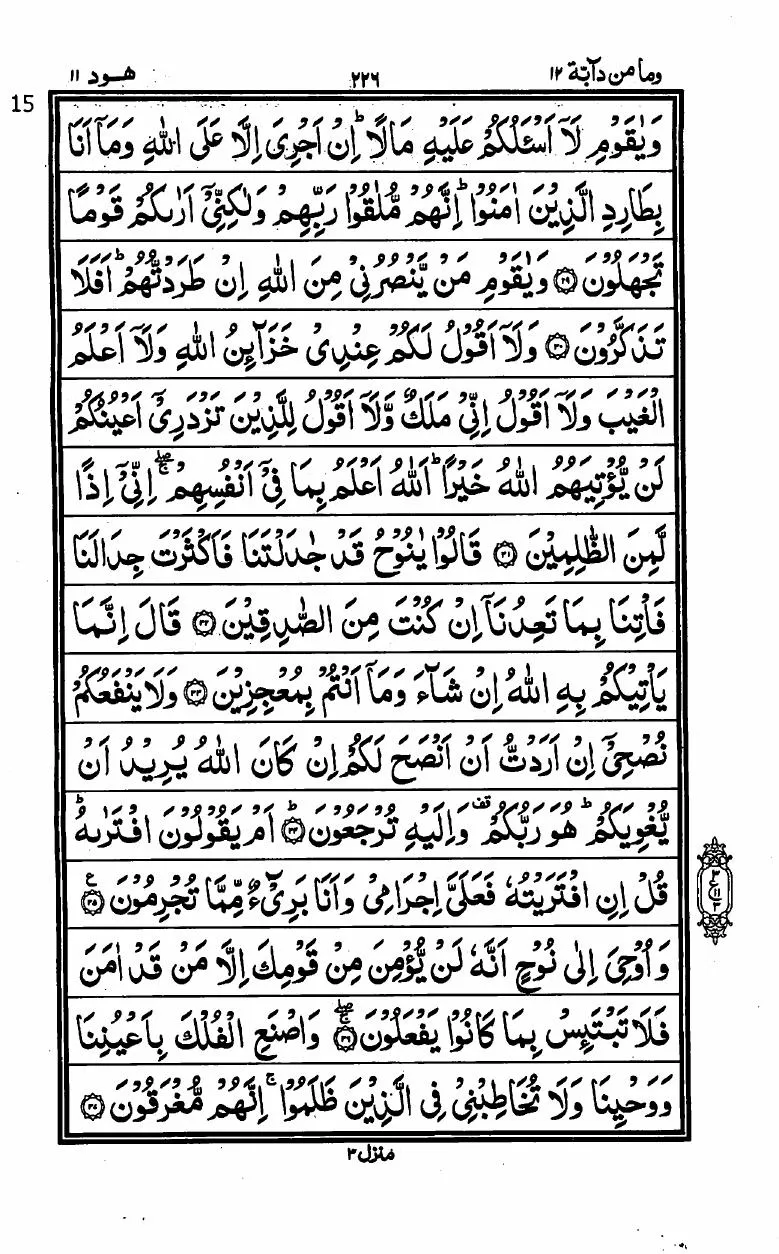 وما من دآبة ۱۲
۲۲۶
هود ۱۱
15
وَيٰقَوْمِ لَاۤ اَسْـَٔلُكُمْ عَلَيْهِ مَالًا ؕ اِنْ اَجْرِيَ اِلَّا عَلَى اللّٰهِ وَمَاۤ اَنَا
بِطَارِدِ الَّذِيْنَ اٰمَنُوْا ؕ اِنَّهُمْ مُّلٰقُوْا رَبِّهِمْ وَلٰكِنِّيْۤ اَرٰىكُمْ قَوْمًا
تَجْهَلُوْنَ ۝۲۹ وَيٰقَوْمِ مَنْ يَّنْصُرُنِيْ مِنَ اللّٰهِ اِنْ طَرَدْتُّهُمْ ؕ اَفَلَا
تَذَكَّرُوْنَ ۝۳۰ وَلَاۤ اَقُوْلُ لَكُمْ عِنْدِيْ خَزَآئِنُ اللّٰهِ وَلَاۤ اَعْلَمُ
الْغَيْبَ وَلَاۤ اَقُوْلُ اِنِّيْ مَلَكٌ وَّلَاۤ اَقُوْلُ لِلَّذِيْنَ تَزْدَرِيْۤ اَعْيُنُكُمْ
لَنْ يُّؤْتِيَهُمُ اللّٰهُ خَيْرًا ؕ اَللّٰهُ اَعْلَمُ بِمَا فِيْۤ اَنْفُسِهِمْ ۖۚ اِنِّيْۤ اِذًا
لَّمِنَ الظّٰلِمِيْنَ ۝۳۱ قَالُوْا يٰنُوْحُ قَدْ جٰدَلْتَنَا فَاَكْثَرْتَ جِدَالَنَا
فَاْتِنَا بِمَا تَعِدُنَاۤ اِنْ كُنْتَ مِنَ الصّٰدِقِيْنَ ۝۳۲ قَالَ اِنَّمَا
يَاْتِيْكُمْ بِهِ اللّٰهُ اِنْ شَآءَ وَمَاۤ اَنْتُمْ بِمُعْجِزِيْنَ ۝۳۳ وَلَا يَنْفَعُكُمْ
نُصْحِيْۤ اِنْ اَرَدْتُّ اَنْ اَنْصَحَ لَكُمْ اِنْ كَانَ اللّٰهُ يُرِيْدُ اَنْ
يُّغْوِيَكُمْ ؕ هُوَ رَبُّكُمْ ۫ وَاِلَيْهِ تُرْجَعُوْنَ ؕ۝۳۴ اَمْ يَقُوْلُوْنَ افْتَرٰىهُ ؕ
قُلْ اِنِ افْتَرَيْتُهٗ فَعَلَيَّ اِجْرَامِيْ وَاَنَا بَرِيْٓءٌ مِّمَّا تُجْرِمُوْنَ ۝۳۵ ع
وَاُوْحِيَ اِلٰى نُوْحٍ اَنَّهٗ لَنْ يُّؤْمِنَ مِنْ قَوْمِكَ اِلَّا مَنْ قَدْ اٰمَنَ
فَلَا تَبْتَئِسْ بِمَا كَانُوْا يَفْعَلُوْنَ ۖۚ۝۳۶ وَاصْنَعِ الْفُلْكَ بِاَعْيُنِنَا
وَوَحْيِنَا وَلَا تُخَاطِبْنِيْ فِي الَّذِيْنَ ظَلَمُوْا ۚ اِنَّهُمْ مُّغْرَقُوْنَ ۝۳۷
منزل ۳